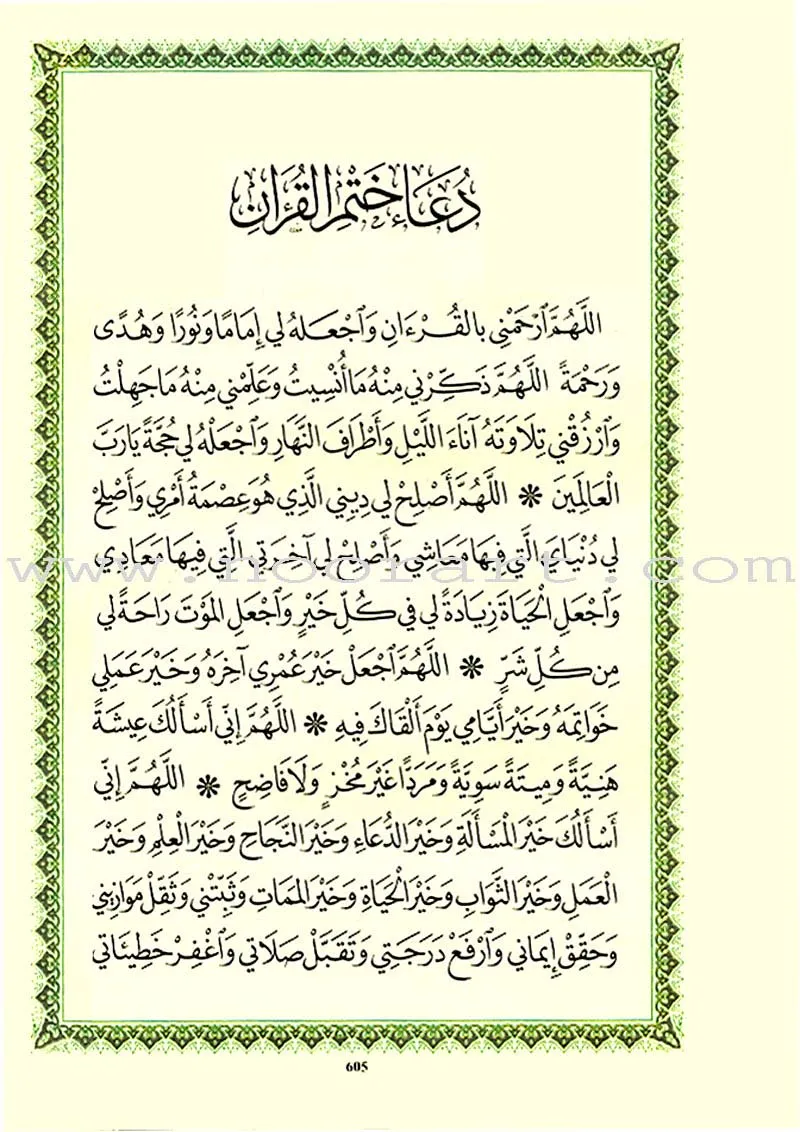 دُعَاءُ خَتْمِ الْقُرْآنِ
اللَّهُمَّ ٱرْحَمْنِي بِالقُرْءَانِ وَٱجْعَلهُ لِي إِمَامًا وَنُورًا وَهُدًى
وَرَحْمَةً اللَّهُمَّ ذَكِّرْنِي مِنْهُ مَا أُنْسِيتُ وَعَلِّمْنِي مِنْهُ مَا جَهِلْتُ
وَٱرْزُقْنِي تِلَاوَتَهُ آنَاءَ اللَّيْلِ وَأَطْرَافَ النَّهَارِ وَٱجْعَلْهُ لِي حُجَّةً يَا رَبَّ
الْعَالَمِينَ ❋ اللَّهُمَّ أَصْلِحْ لِي دِينِي الَّذِي هُوَ عِصْمَةُ أَمْرِي وَأَصْلِحْ
لِي دُنْيَايَ الَّتِي فِيهَا مَعَاشِي وَأَصْلِحْ لِي آخِرَتِي الَّتِي فِيهَا مَعَادِي
www.noorart.com
وَٱجْعَلِ الْحَيَاةَ زِيَادَةً لِي فِي كُلِّ خَيْرٍ وَٱجْعَلِ الْمَوْتَ رَاحَةً لِي
مِن كُلِّ شَرٍّ ❋ اللَّهُمَّ ٱجْعَلْ خَيْرَ عُمْرِي آخِرَهُ وَخَيْرَ عَمَلِي
خَوَاتِمَهُ وَخَيْرَ أَيَّامِي يَوْمَ أَلْقَاكَ فِيهِ ❋ اللَّهُمَّ إِنِّي أَسْأَلُكَ عِيشَةً
هَنِيَّةً وَمِيتَةً سَوِيَّةً وَمَرَدًّا غَيْرَ مُخْزٍ وَلَا فَاضِحٍ ❋ اللَّهُمَّ إِنِّي
أَسْأَلُكَ خَيْرَ الْمَسْأَلَةِ وَخَيْرَ الدُّعَاءِ وَخَيْرَ النَّجَاحِ وَخَيْرَ الْعِلْمِ وَخَيْرَ
الْعَمَلِ وَخَيْرَ الثَّوَابِ وَخَيْرَ الْحَيَاةِ وَخَيْرَ الْمَمَاتِ وَثَبِّتْنِي وَثَقِّلْ مَوَازِينِي
وَحَقِّقْ إِيمَانِي وَٱرْفَعْ دَرَجَتِي وَتَقَبَّلْ صَلَاتِي وَٱغْفِرْ خَطِيئَاتِي
605